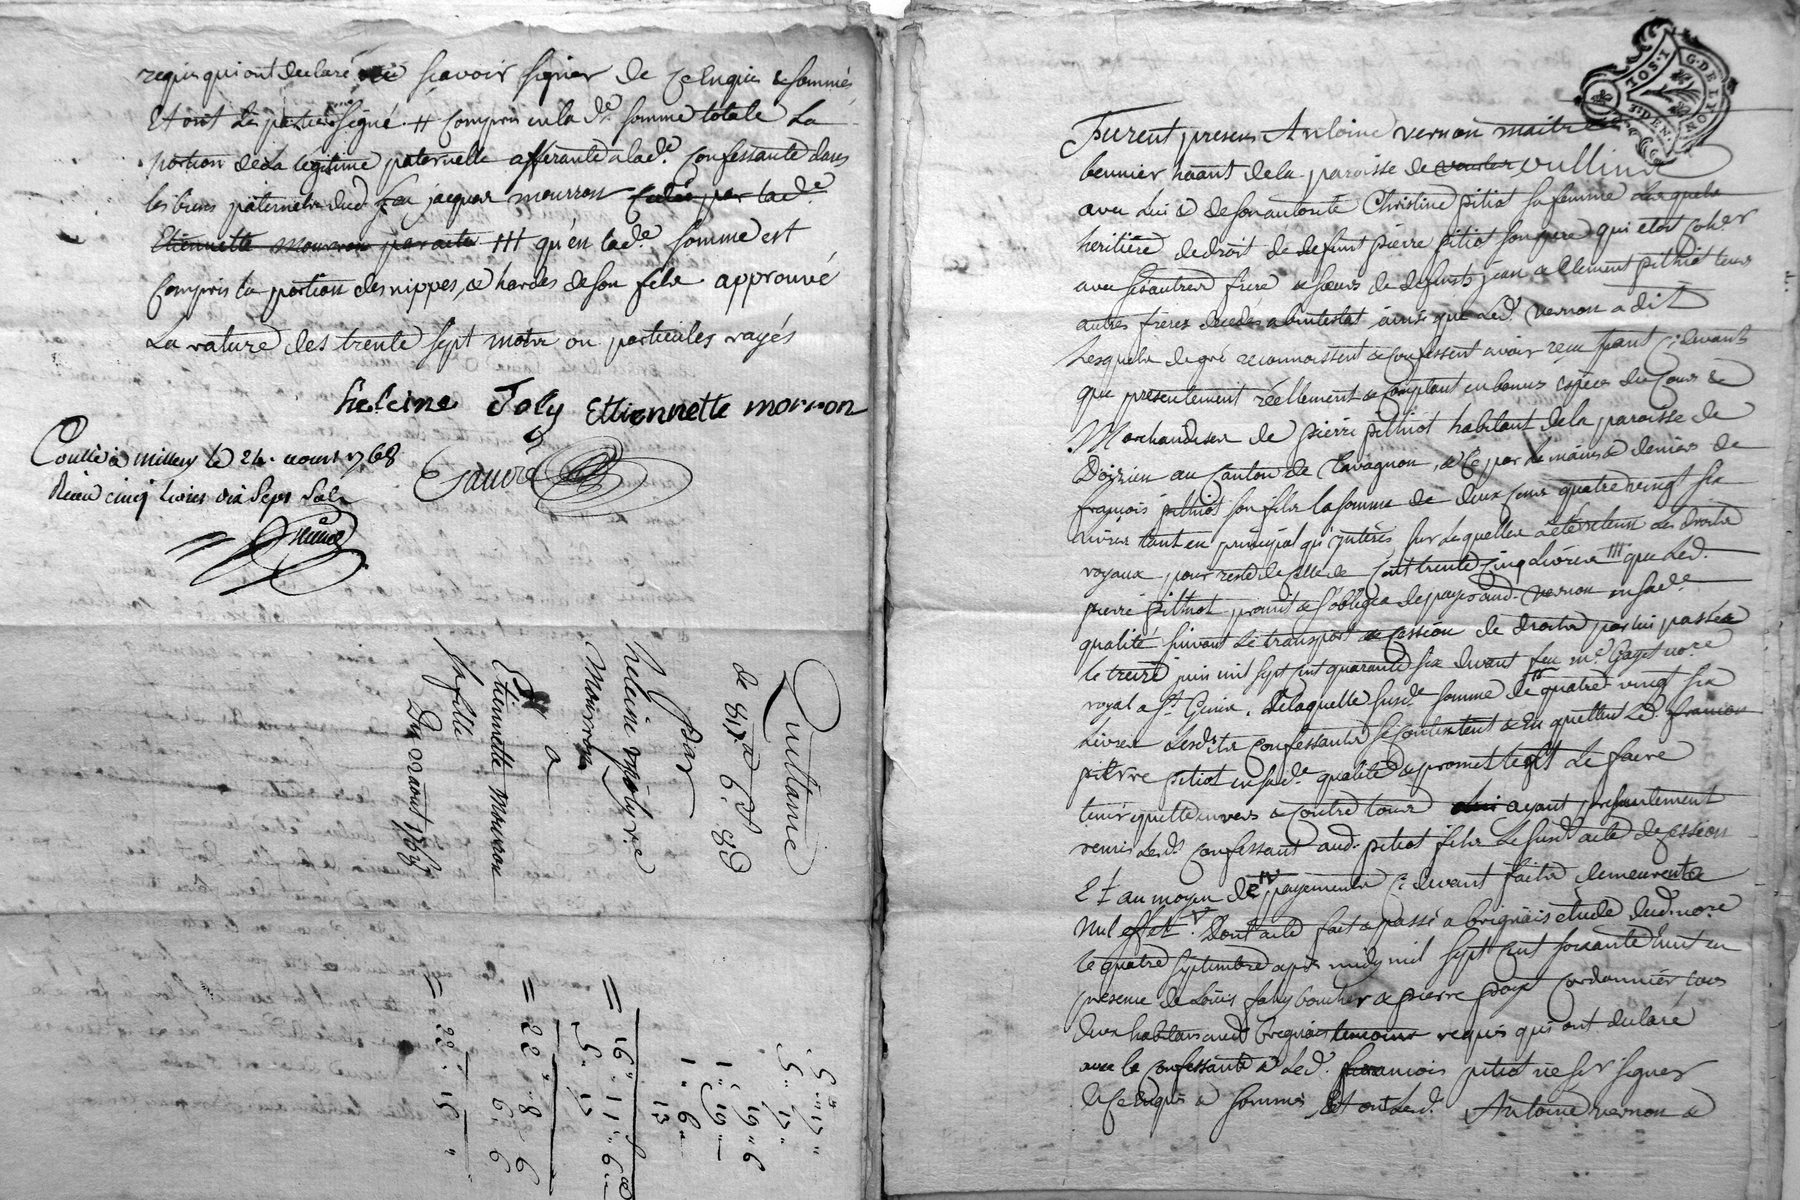 requis qui ont declaré ne sçavoir signer de ce enquis & sommés
et ont les parties signé. # Compris en la de. somme totale La
portion de la legitime paternelle afferante a lade. Confessante dans
les biens paternels dud. feu jacques mourron cedés par lade.
Etiennette Mourron par acte III qu'en lade. somme est
Compris la portion des nippes, & hardes de son pere approuvé
La rature des trente sept mots ou particules rayés
heleine Joly Ettiennette morron
Collé a millery le 24. aoust 1768
Reçu cinq livres dix sept sols
Quittance
de 818 6. 8d
Par
heleine Moly Ve
Mourron
a
Etiennette Mourron
sa fille
Du 22 aout 1768
5" 17"
5" 17"
19" 6
1" 19"
1" 6"
13
5" 17
= 16" 11" 6
= 22" 8" 6
= 22" 15"
G. DE LYON
Furent presens Antoine vernon maitre
bennier habitant de la paroisse de vullin
avec lui & de son autorité Christine pitiot sa femme laquelle
heritiere de droit de defunt pierre pitiot son pere qui etoit coher
avec ses autres frere & sœurs de defunts jean & Clement pithiot leurs
autres freres decedés abintestat, ainsi que led. vernon a dit
Lesquels de gré reconnoissent & Confessent avoir recu tant Ci devant
que presentement réellement & Comptant en bonnes espèces du Cours &
Marchandises de pierre pithiot habitant de la paroisse de
Doizieu au Canton de Cavagnon, & ce par les mains & deniers de
françois pithiot son fils la somme de deux Cent quatre vingt six
livres tant en principal qu'jnterés sur lesquelles a été retenu les droits
royaux pour reste de Celle de Cent trente Cinq Livres III que Led.
pierre pithiot promit & s'obligea de payer aud. vernon en sade.
qualité suivant le transport & Cession de droits par lui passée
le treize juin mil sept cent quarante six devant feu me. Gayet nore
royal a St. Genis, de laquelle susde. somme de quatre vingt six
Livres lesdits Confessants se Contentent & En quittent Led. francois
pierre pitiot en sade. qualité & promettent Le faire
tenir quitte envers & Contre tous ayant presentement
remis Lesd. Confessant aud. pitiot fils Le susd. acte de Cession
Et au moyen de IV payements Ci devant faits demeurent &
Nul effet V. Dont acte fait & passé a brignais etude dud. nore
le quatre septembre après midy mil sept Cent soixante huit en
presence de Louis fary boucher & pierre poyet Cordonnier tous
deux habitans aud. Brignais temoins requis qui ont declaré
avec la confessante & Led. francois pitiot ne sçavoir signer
de ce Enquis & sommés Et ont Led. Antoine vernon &